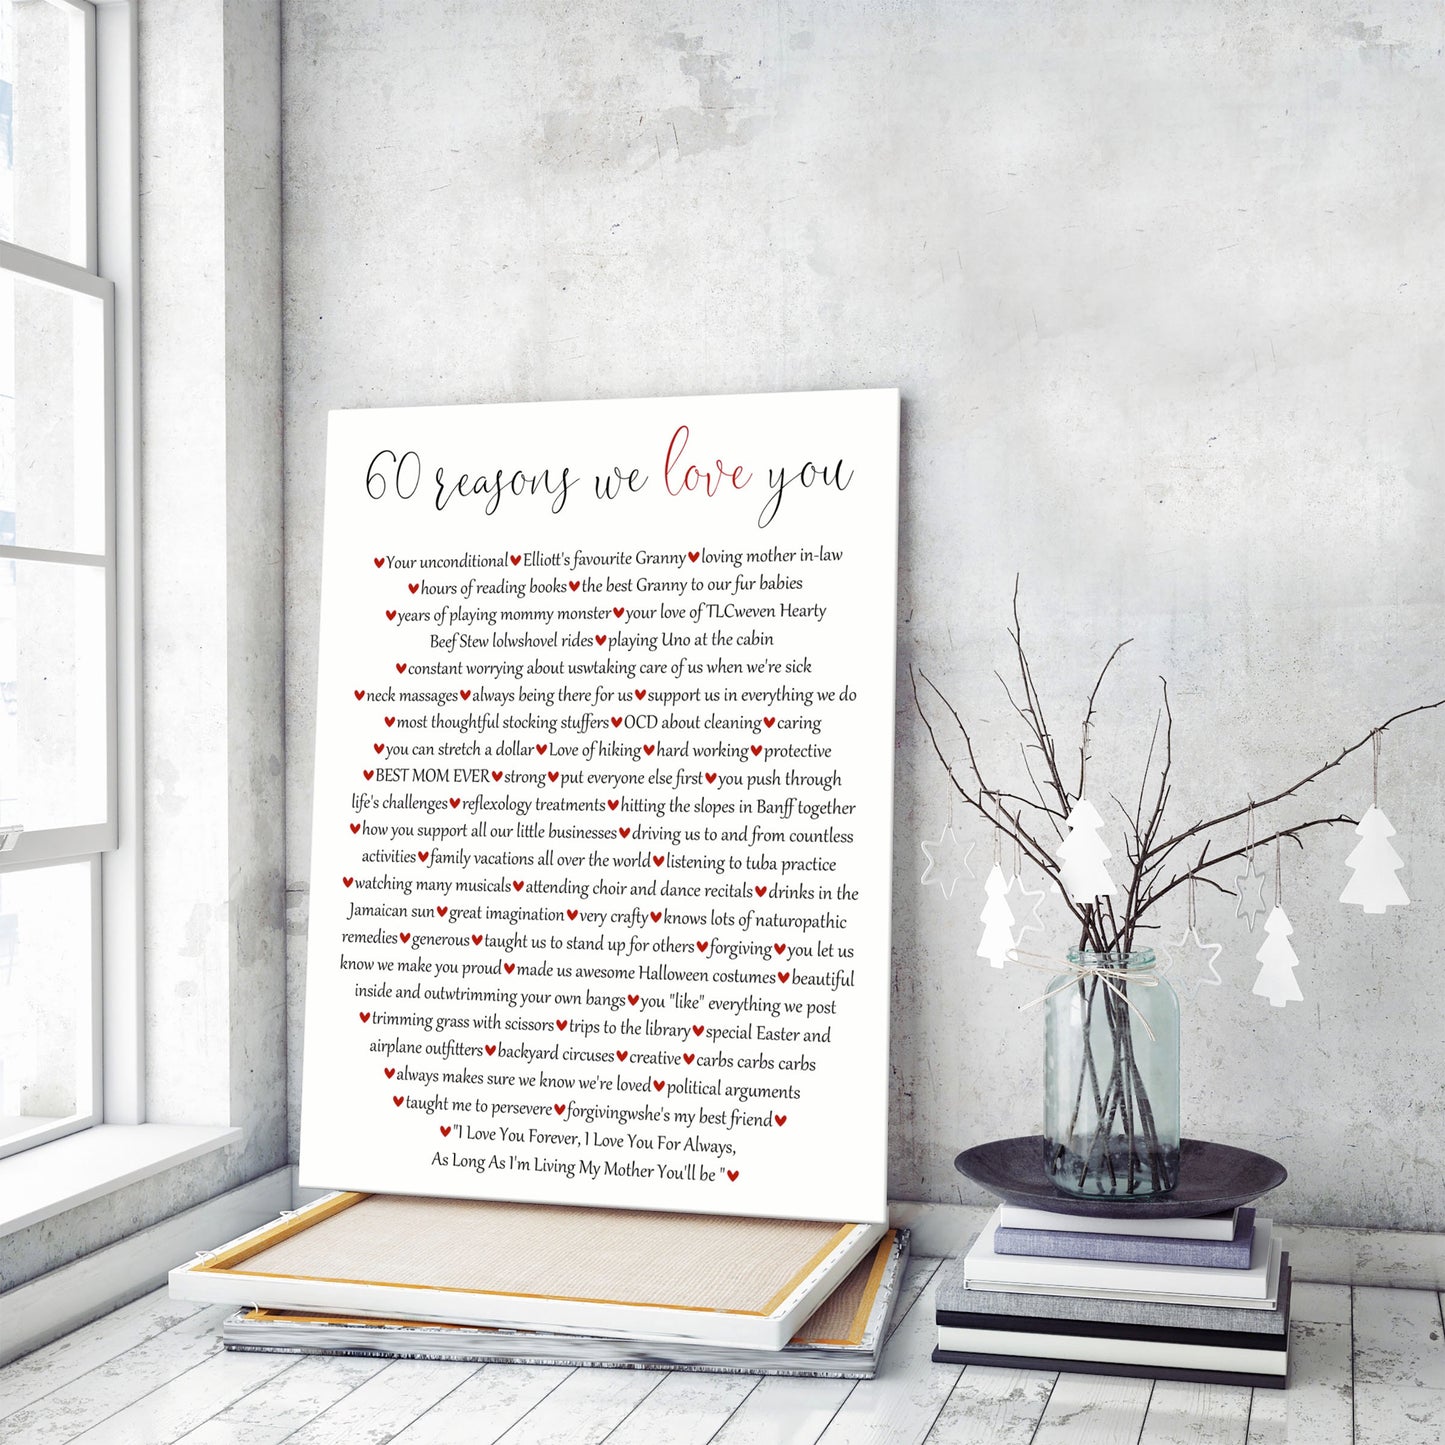 60 reasons we love you
♥Your unconditional♥Elliott's favourite Granny♥loving mother in-law
♥hours of reading books♥the best Granny to our fur babies
♥years of playing mommy monster♥your love of TLCweven Hearty
Beef Stew lolwshovel rides♥playing Uno at the cabin
♥constant worrying about uswtaking care of us when we're sick
♥neck massages♥always being there for us♥support us in everything we do
♥most thoughtful stocking stuffers♥OCD about cleaning♥caring
♥you can stretch a dollar♥Love of hiking♥hard working♥protective
♥BEST MOM EVER♥strong♥put everyone else first♥you push through
life's challenges♥reflexology treatments♥hitting the slopes in Banff together
♥how you support all our little businesses♥driving us to and from countless
activities♥family vacations all over the world♥listening to tuba practice
♥watching many musicals♥attending choir and dance recitals♥drinks in the
Jamaican sun♥great imagination♥very crafty♥knows lots of naturopathic
remedies♥generous♥taught us to stand up for others♥forgiving♥you let us
know we make you proud♥made us awesome Halloween costumes♥beautiful
inside and outwtrimming your own bangs♥you "like" everything we post
♥trimming grass with scissors♥trips to the library♥special Easter and
airplane outfitters♥backyard circuses♥creative♥carbs carbs carbs
♥always makes sure we know we're loved♥political arguments
♥taught me to persevere♥forgivingwshe's my best friend♥
♥"I Love You Forever, I Love You For Always,
As Long As I'm Living My Mother You'll be "♥